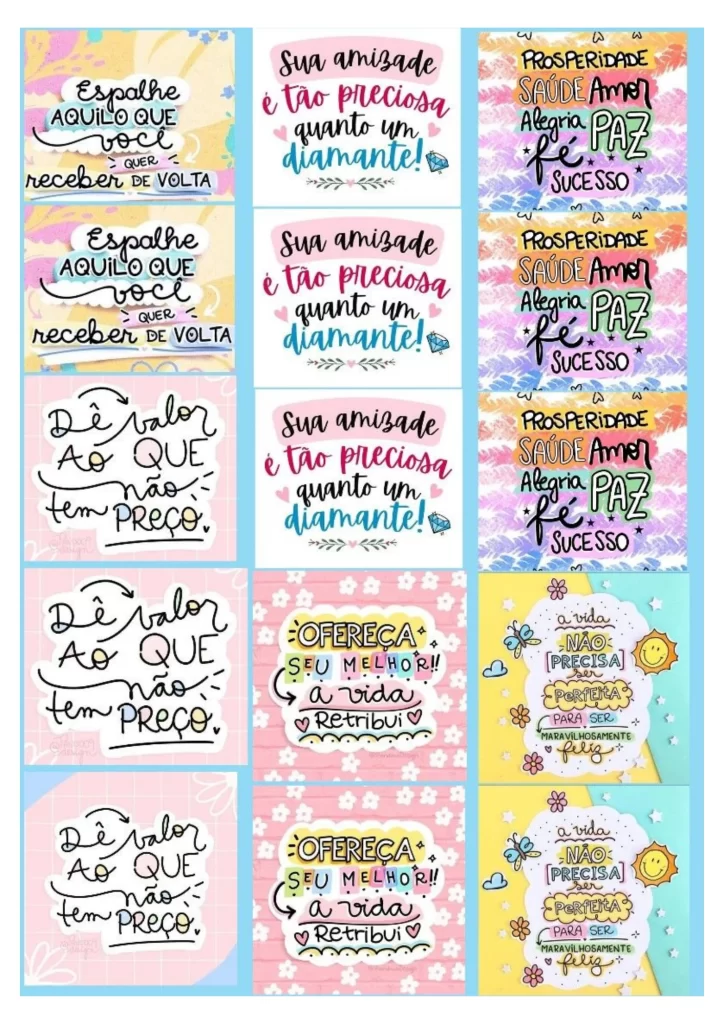 Espalhe
AQUILO QUE
você
QUER
receber DE VOLTA
Espalhe
AQUILO QUE
você
QUER
receber DE VOLTA
Dê valor
Ao QUE
não
tem PREÇO.
Dê valor
Ao QUE
não
tem PREÇO.
Dê valor
Ao QUE
não
tem PREÇO.
Sua amizade
é tão preciosa
quanto um
diamante!
Sua amizade
é tão preciosa
quanto um
diamante!
Sua amizade
é tão preciosa
quanto um
diamante!
OFEREÇA
SEU MELHOR!!
a vida
Retribui
OFEREÇA
SEU MELHOR!!
a vida
Retribui
PROSPERIDADE
SAÚDE Amor
Alegria PAZ
fé
SUCESSO
PROSPERIDADE
SAÚDE Amor
Alegria PAZ
fé
SUCESSO
PROSPERIDADE
SAÚDE Amor
Alegria PAZ
fé
SUCESSO
a vida
NÃO
PRECISA
ser
PERFEITA
PARA SER
MARAVILHOSAMENTE
feliz
a vida
NÃO
PRECISA
ser
PERFEITA
PARA SER
MARAVILHOSAMENTE
feliz